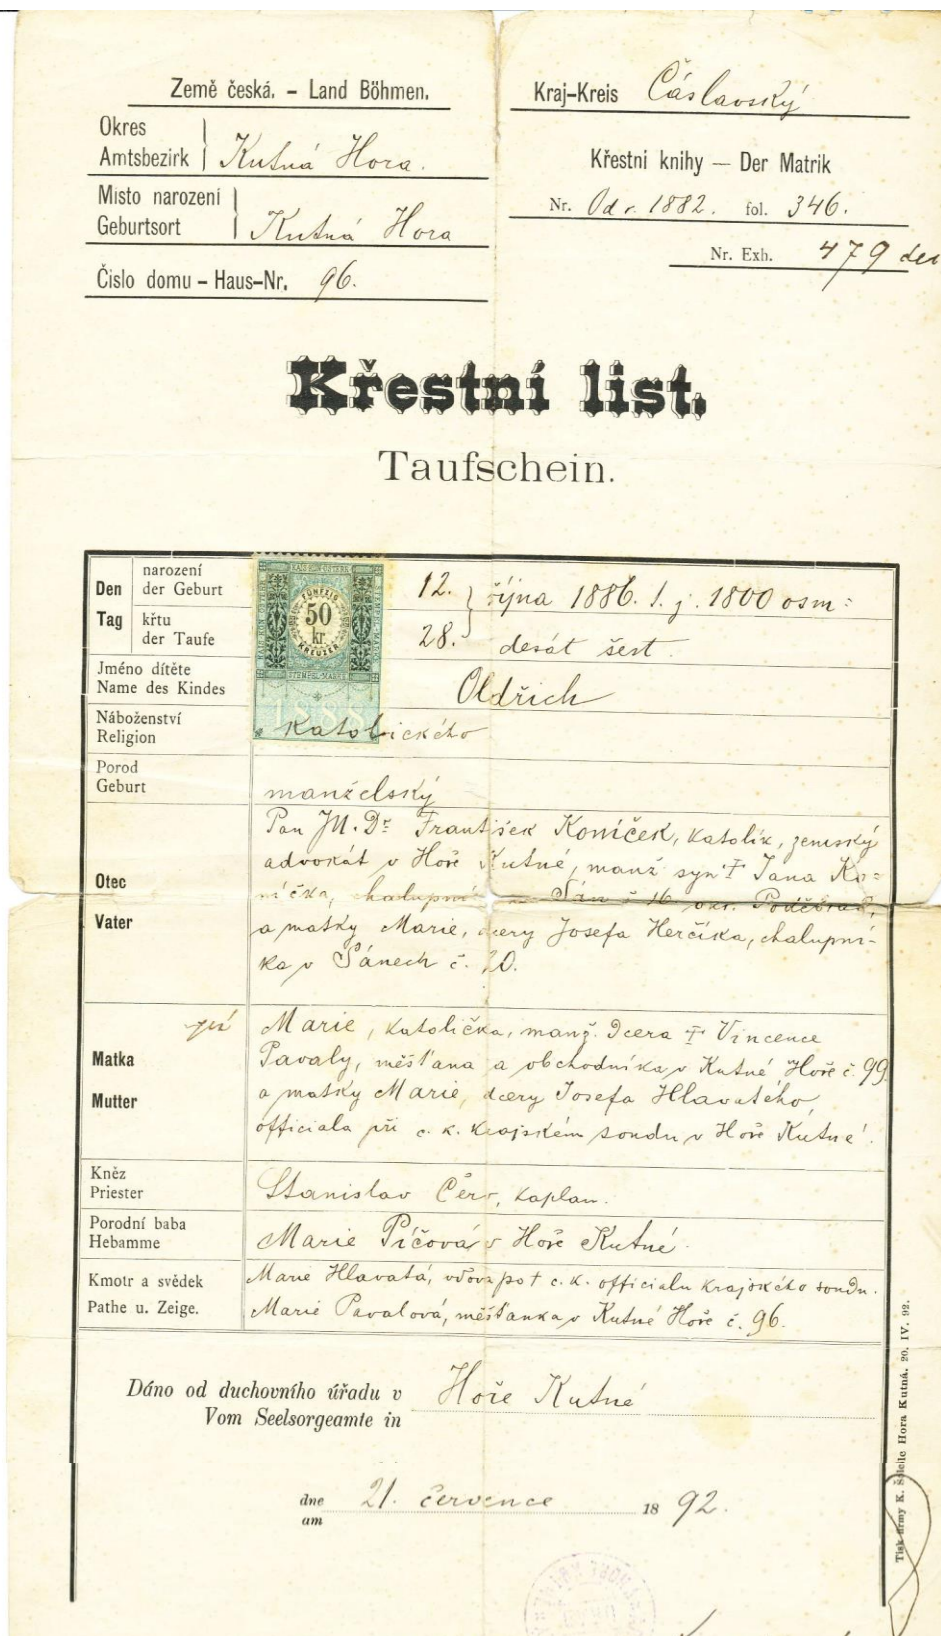 Země česká. – Land Böhmen.
Okres
Amtsbezirk
Kutná Hora.
Místo narození
Geburtsort
Kutná Hora
Číslo domu – Haus-Nr. 96.
Kraj-Kreis Čáslavský
Křestní knihy — Der Matrik
Nr. Od r. 1882. fol. 346.
Nr. Exh. 479
Křestní list.
Taufschein.
Den
Tag
narození
der Geburt
křtu
der Taufe
FÜNFZIG
50
kr.
KREUZER
STEMPEL-MARKE
1888
12. října 1886. t. j. 1800 osm=
28. desát šest.
Jméno dítěte
Name des Kindes
Oldřich
Náboženství
Religion
katolického
Porod
Geburt
manželský
Otec
Vater
Pan JU. Dr. František Koníček, katolík, zemský
advokát v Hoře Kutné, manž syn † Jana Ko=
níčka, chalupníka Sán č 16 okr. Poděbrad,
a matky Marie, dcery Josefa Herčíka, chalupní-
ka v Sánech č. 20.
Matka
Mutter
Marie, katolička, manž. dcera † Vincence
Pavaly, měšťana a obchodníka v Kutné Hoře č. 99
a matky Marie, dcery Josefa Hlavatého,
officiala při c. k. krajském soudu v Hoře Kutné.
Kněz
Priester
Stanislav Červ, kaplan.
Porodní baba
Hebamme
Marie Píčová v Hoře Kutné.
Kmotr a svědek
Pathe u. Zeige.
Marie Hlavatá, vdova po † c. k. officialu krajského soudu.
Marie Pavalová, měšťanka v Kutné Hoře č. 96.
Dáno od duchovního úřadu v
Vom Seelsorgeamte in
Hoře Kutné
dne
am
21. července 1892.
Tisk firmy K. Šolcílc Hora Kutná. 20. IV. 92.